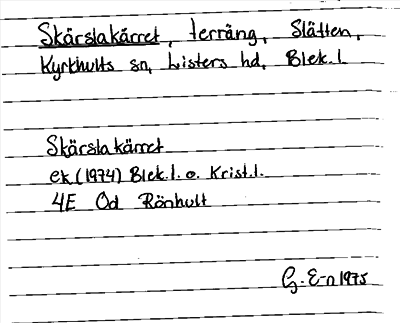 Skärslakärret, terräng, Slätten,
Kyrkhults sn, Listers hd, Blek. l.
Skärslakärret
ek (1974) Blek. l. o. Krist. l.
4E Od Rönhult
G. E-n 1975